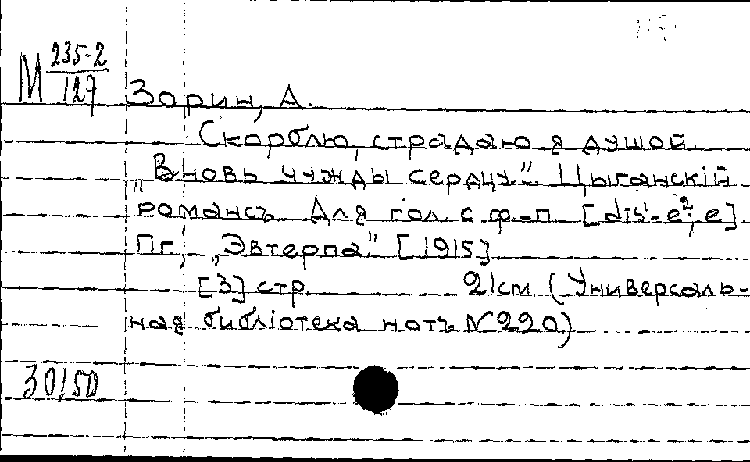 М 235-2
127
Зорин, А.
Скорблю, страдаю я душой
„Вновь чужды сердцу". Цыганскій
романсъ. Для гол. с ф.-п. [dis¹-e²; e].
Пг., „Эвтерпа" [1915]
[3] стр. 21см (Универсаль-
ная библіотека нотъ №220)
30150